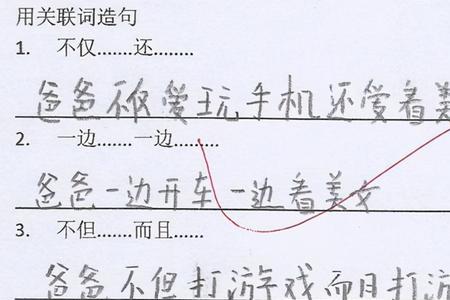 用关联词造句
1. 不仅.......还........
爸爸不仅爱玩手机还爱看美
2. 一边.......一边.........
爸爸一边开车一边看美女
3. 不但.......而且......
爸爸不但打游戏而且打游